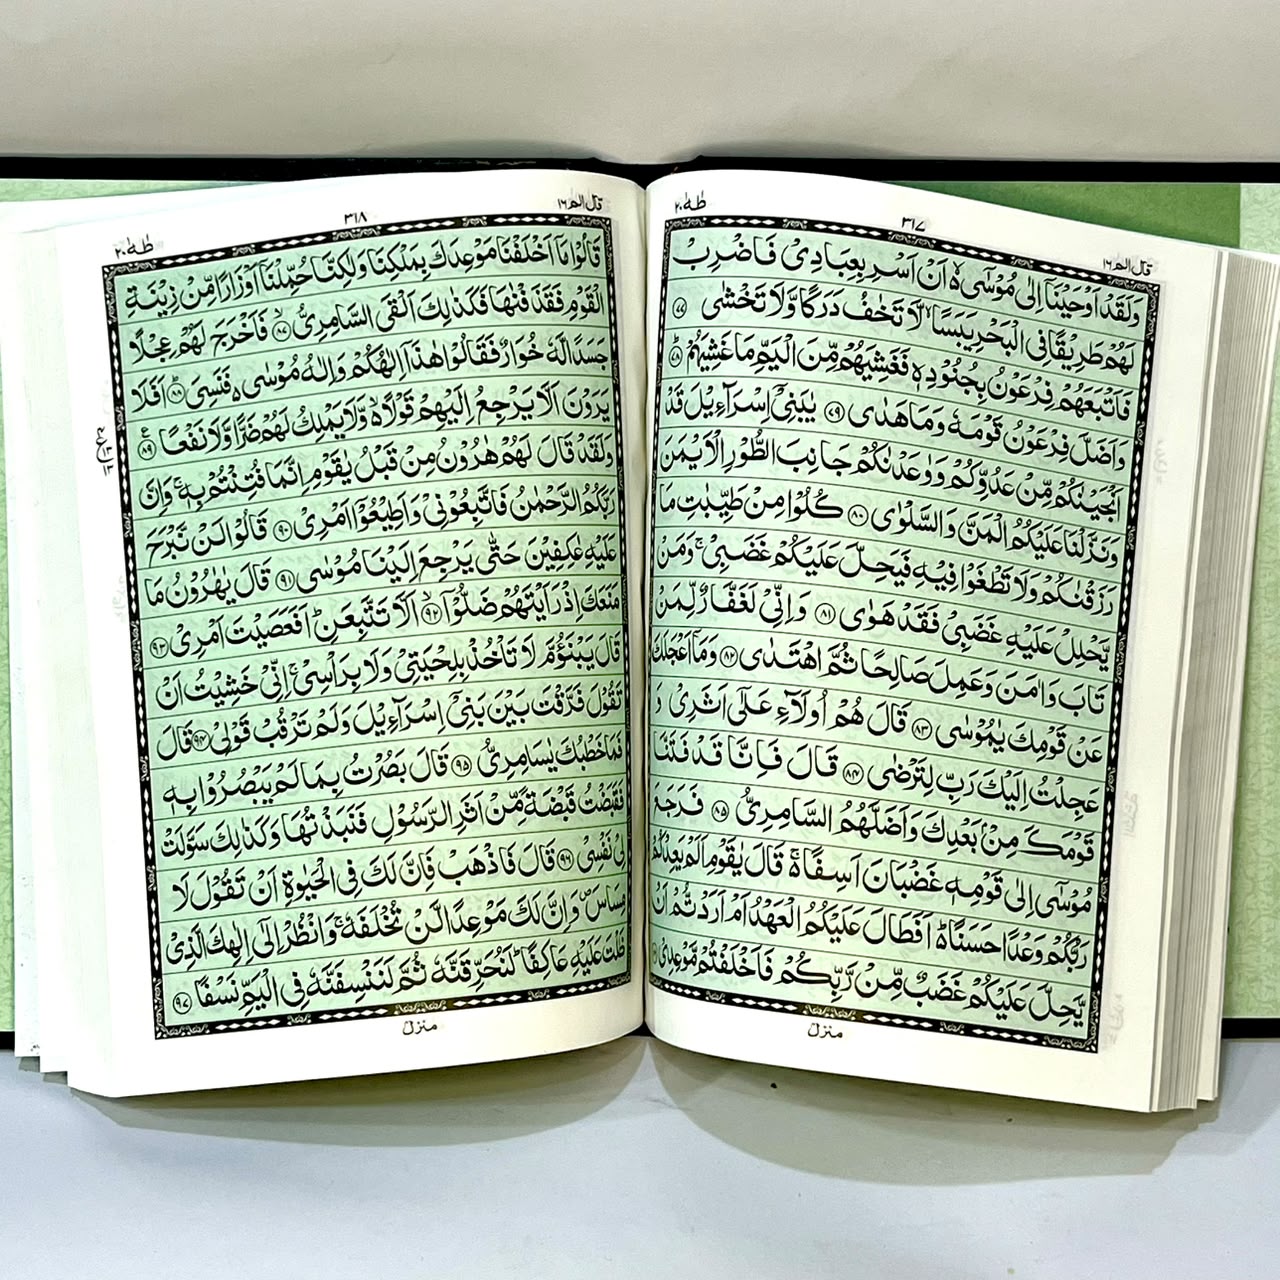 طٰهٰ ٢٠
٣١٧
قال الم ١٦
وَلَقَدْ اَوْحَيْنَاۤ اِلٰى مُوْسٰۤى ۙ اَنْ اَسْرِ بِعِبَادِىْ فَاضْرِبْ
لَهُمْ طَرِيْقًا فِى الْبَحْرِ يَبَسًا ۙ لَّا تَخٰفُ دَرَكًا وَّلَا تَخْشٰى ﴿٧٧﴾
فَاَتْبَعَهُمْ فِرْعَوْنُ بِجُنُوْدِهٖ فَغَشِيَهُمْ مِّنَ الْيَمِّ مَا غَشِيَهُمْ ؕ ﴿٧٨﴾
وَاَضَلَّ فِرْعَوْنُ قَوْمَهٗ وَمَا هَدٰى ﴿٧٩﴾ يٰبَنِىْۤ اِسْرَآءِيْلَ قَدْ
اَنْجَيْنٰكُمْ مِّنْ عَدُوِّكُمْ وَوٰعَدْنٰكُمْ جَانِبَ الطُّوْرِ الْاَيْمَنَ
وَنَزَّلْنَا عَلَيْكُمُ الْمَنَّ وَالسَّلْوٰى ﴿٨٠﴾ كُلُوْا مِنْ طَيِّبٰتِ مَا
رَزَقْنٰكُمْ وَلَا تَطْغَوْا فِيْهِ فَيَحِلَّ عَلَيْكُمْ غَضَبِىْ ۚ وَمَنْ
يَّحْلِلْ عَلَيْهِ غَضَبِىْ فَقَدْ هَوٰى ﴿٨١﴾ وَاِنِّىْ لَغَفَّارٌ لِّمَنْ
تَابَ وَاٰمَنَ وَعَمِلَ صَالِحًا ثُمَّ اهْتَدٰى ﴿٨٢﴾ وَمَاۤ اَعْجَلَكَ
عَنْ قَوْمِكَ يٰمُوْسٰى ﴿٨٣﴾ قَالَ هُمْ اُولَآءِ عَلٰۤى اَثَرِىْ وَ
عَجِلْتُ اِلَيْكَ رَبِّ لِتَرْضٰى ﴿٨٤﴾ قَالَ فَاِنَّا قَدْ فَتَنَّا
قَوْمَكَ مِنْۢ بَعْدِكَ وَاَضَلَّهُمُ السَّامِرِىُّ ﴿٨٥﴾ فَرَجَعَ
مُوْسٰۤى اِلٰى قَوْمِهٖ غَضْبَانَ اَسِفًا ۚ قَالَ يٰقَوْمِ اَلَمْ يَعِدْكُمْ
رَبُّكُمْ وَعْدًا حَسَنًا ؕ اَفَطَالَ عَلَيْكُمُ الْعَهْدُ اَمْ اَرَدْتُّمْ اَنْ
يَّحِلَّ عَلَيْكُمْ غَضَبٌ مِّنْ رَّبِّكُمْ فَاَخْلَفْتُمْ مَّوْعِدِىْ
منزل
قال الم ١٦
٣١٨
طٰهٰ ٢٠
قَالُوْا مَاۤ اَخْلَفْنَا مَوْعِدَكَ بِمَلْكِنَا وَلٰكِنَّا حُمِّلْنَاۤ اَوْزَارًا مِّنْ زِيْنَةِ
الْقَوْمِ فَقَذَفْنٰهَا فَكَذٰلِكَ اَلْقَى السَّامِرِىُّ ۙ ﴿٨٧﴾ فَاَخْرَجَ لَهُمْ عِجْلًا
جَسَدًا لَّهٗ خُوَارٌ فَقَالُوْا هٰذَاۤ اِلٰهُكُمْ وَاِلٰهُ مُوْسٰى ۥ فَنَسِىَ ؕ ﴿٨٨﴾ اَفَلَا
يَرَوْنَ اَلَّا يَرْجِعُ اِلَيْهِمْ قَوْلًا ۙ وَّلَا يَمْلِكُ لَهُمْ ضَرًّا وَّلَا نَفْعًا ﴿٨٩﴾
ع ١٣ ١٣
وَلَقَدْ قَالَ لَهُمْ هٰرُوْنُ مِنْ قَبْلُ يٰقَوْمِ اِنَّمَا فُتِنْتُمْ بِهٖ ۚ وَاِنَّ
رَبَّكُمُ الرَّحْمٰنُ فَاتَّبِعُوْنِىْ وَاَطِيْعُوْۤا اَمْرِىْ ﴿٩٠﴾ قَالُوْا لَنْ نَّبْرَحَ
عَلَيْهِ عٰكِفِيْنَ حَتّٰى يَرْجِعَ اِلَيْنَا مُوْسٰى ﴿٩١﴾ قَالَ يٰهٰرُوْنُ مَا
مَنَعَكَ اِذْ رَاَيْتَهُمْ ضَلُّوْۤا ۙ ﴿٩٢﴾ اَلَّا تَتَّبِعَنِ ؕ اَفَعَصَيْتَ اَمْرِىْ ﴿٩٣﴾
قَالَ يَبْنَؤُمَّ لَا تَاْخُذْ بِلِحْيَتِىْ وَلَا بِرَاْسِىْ ۚ اِنِّىْ خَشِيْتُ اَنْ
تَقُوْلَ فَرَّقْتَ بَيْنَ بَنِىْۤ اِسْرَآءِيْلَ وَلَمْ تَرْقُبْ قَوْلِىْ ﴿٩٤﴾ قَالَ
فَمَا خَطْبُكَ يٰسَامِرِىُّ ﴿٩٥﴾ قَالَ بَصُرْتُ بِمَا لَمْ يَبْصُرُوْا بِهٖ
فَقَبَضْتُ قَبْضَةً مِّنْ اَثَرِ الرَّسُوْلِ فَنَبَذْتُهَا وَكَذٰلِكَ سَوَّلَتْ
لِىْ نَفْسِىْ ﴿٩٦﴾ قَالَ فَاذْهَبْ فَاِنَّ لَكَ فِى الْحَيٰوةِ اَنْ تَقُوْلَ لَا
مِسَاسَ ۪ وَاِنَّ لَكَ مَوْعِدًا لَّنْ تُخْلَفَهٗ ۚ وَانْظُرْ اِلٰۤى اِلٰهِكَ الَّذِىْ
ظَلْتَ عَلَيْهِ عَاكِفًا ؕ لَنُحَرِّقَنَّهٗ ثُمَّ لَنَنْسِفَنَّهٗ فِى الْيَمِّ نَسْفًا ﴿٩٧﴾
منزل